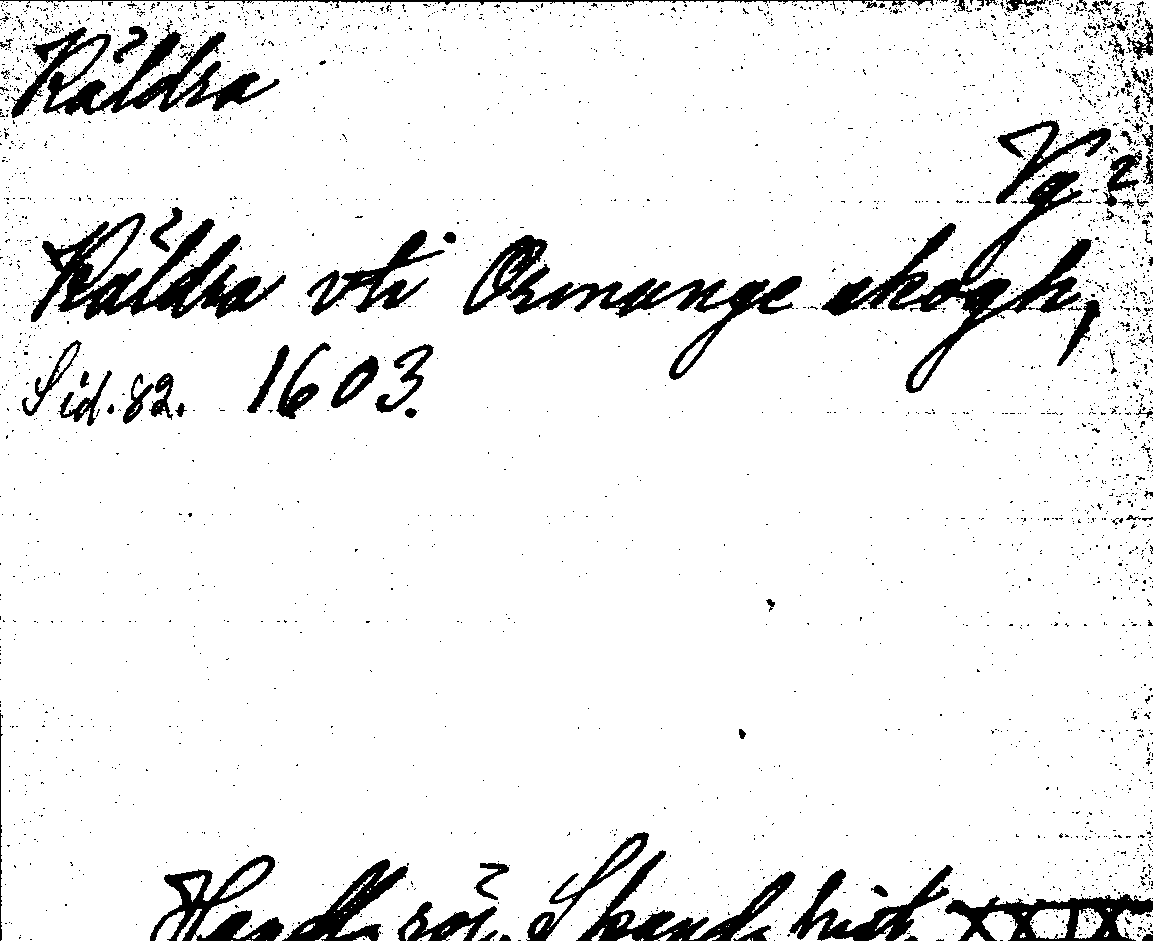 Råldra
Vg?
Råldra vti Ormunge skogh,
Sid. 82. 1603.
Handl. rör. Skand. hist. XXIX.